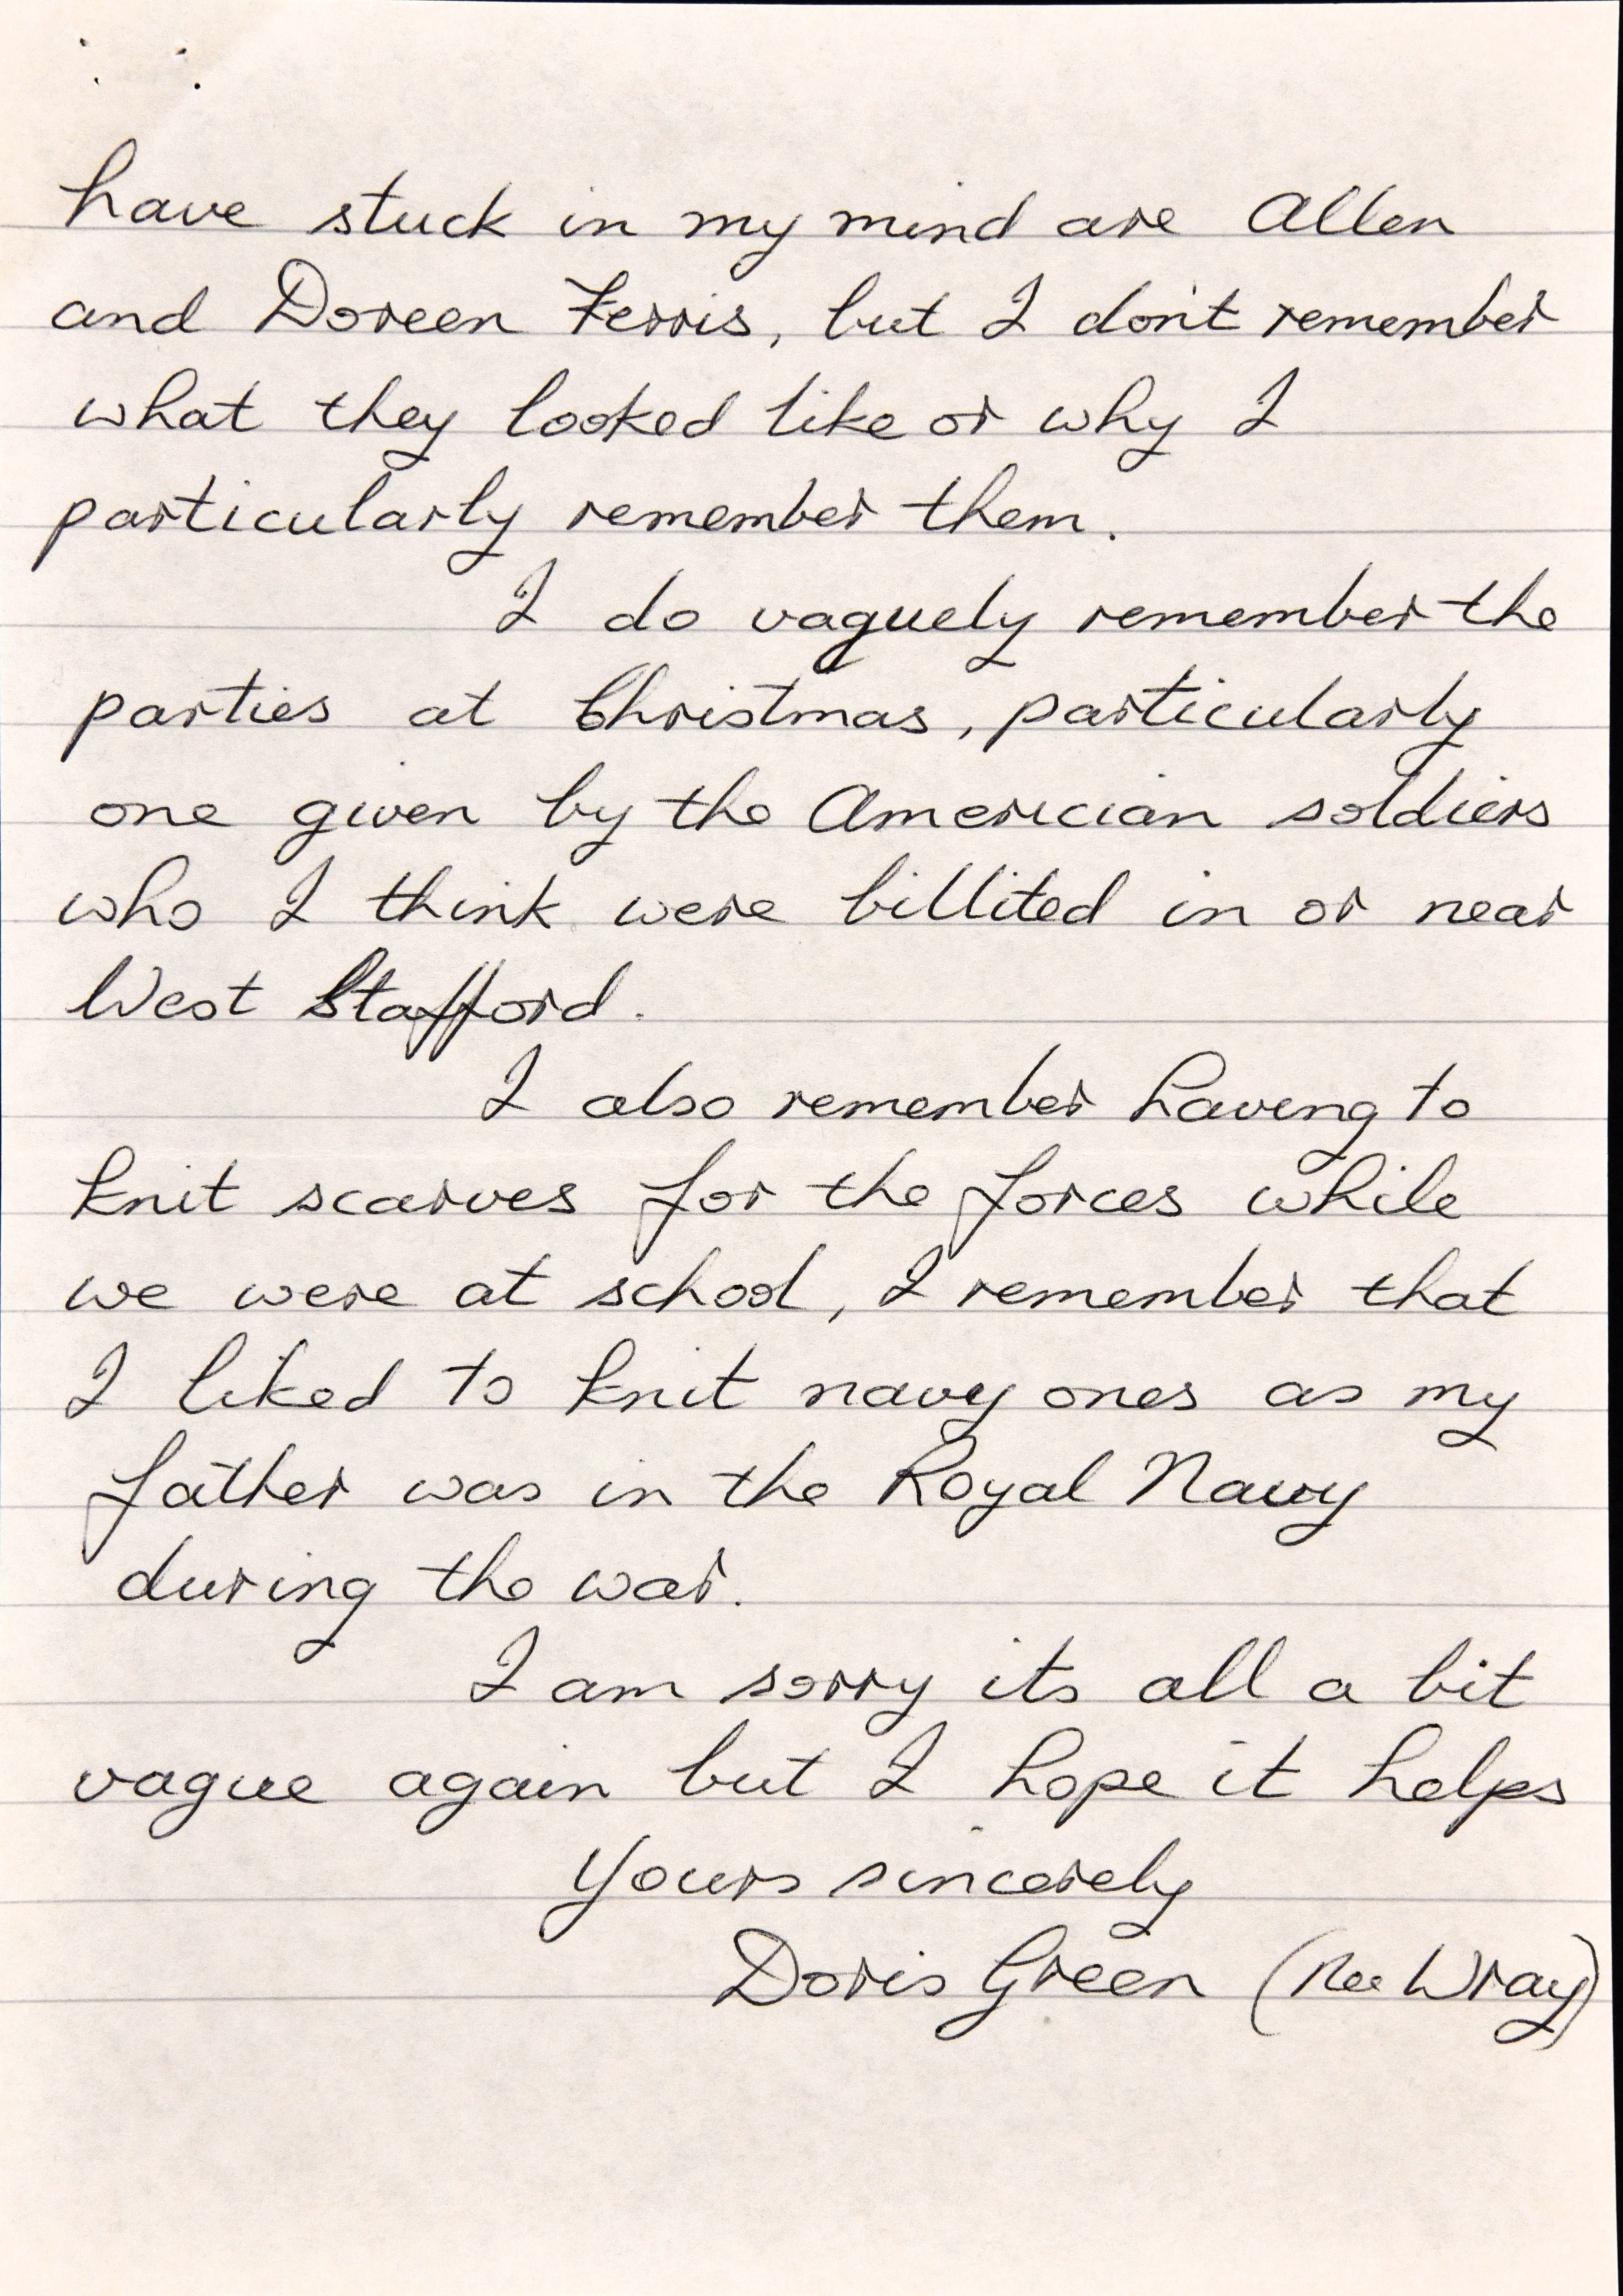 have stuck in my mind are Allen
and Doreen Ferris, but I don't remember
what they looked like or why I
particularly remember them.
I do vaguely remember the
parties at Christmas, particularly
one given by the Americian soldiers
who I think were billited in or near
West Stafford.
I also remember having to
knit scarves for the forces while
we were at school, I remember that
I liked to knit navy ones as my
father was in the Royal Navy
during the war.
I am sorry its all a bit
vague again but I hope it helps
Yours sincerely
Doris Green (Nee Wray)